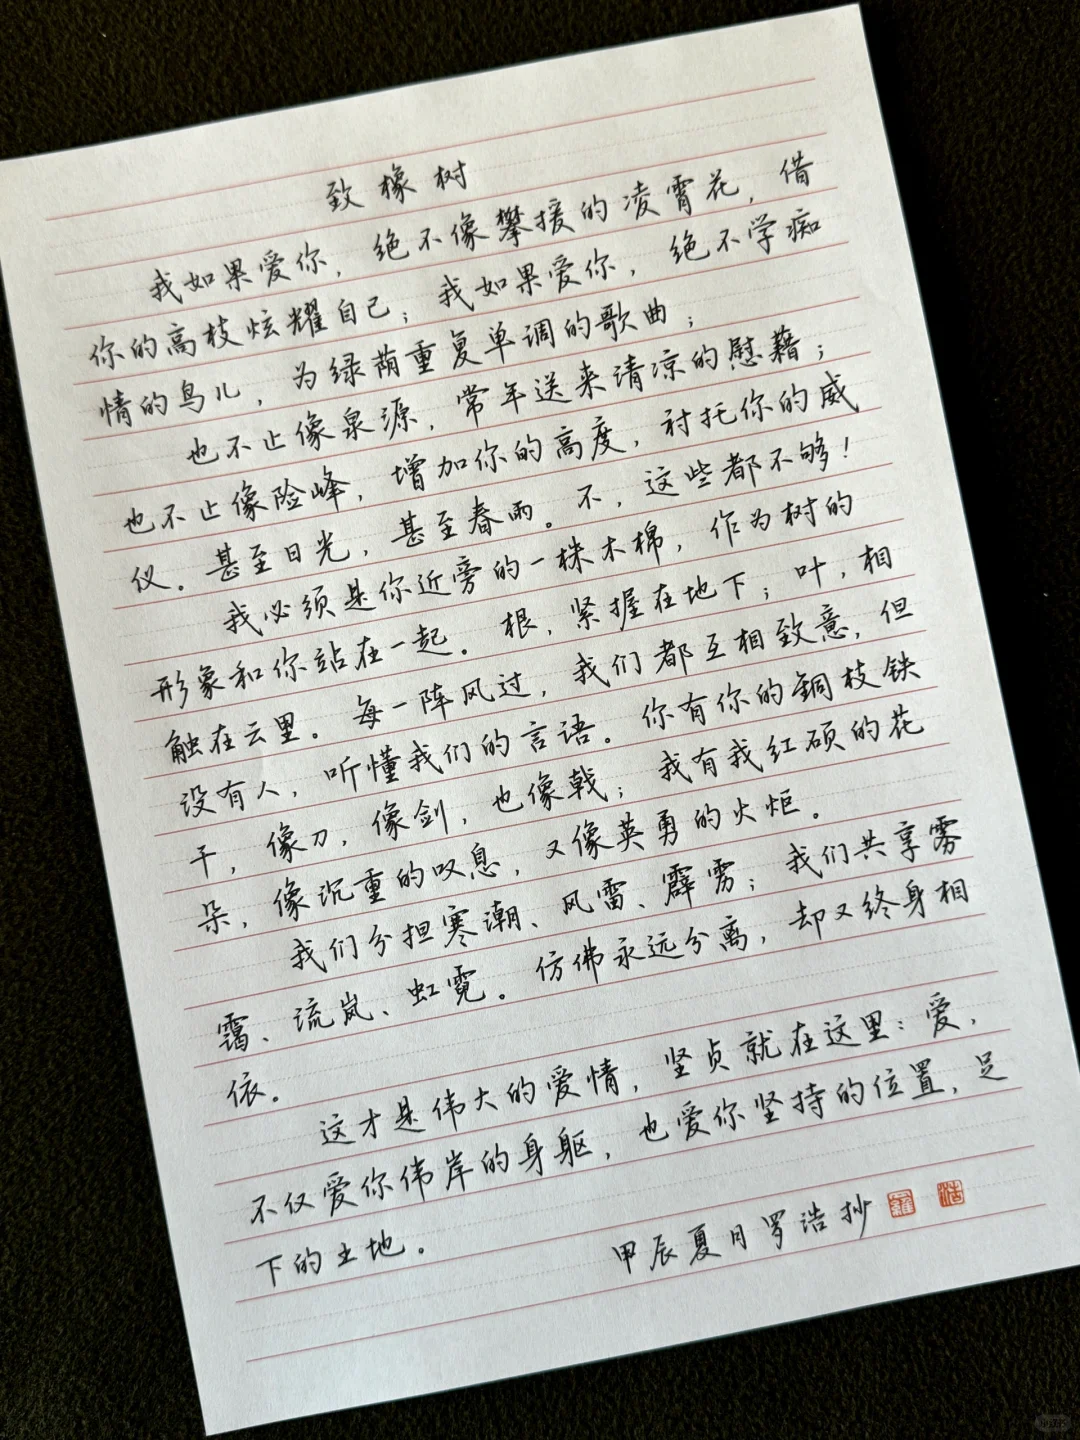 致橡树
我如果爱你，绝不像攀援的凌霄花，借
你的高枝炫耀自己；我如果爱你，绝不学痴
情的鸟儿，为绿荫重复单调的歌曲；
也不止像泉源，常年送来清凉的慰藉；
也不止像险峰，增加你的高度，衬托你的威
仪。甚至日光，甚至春雨。不，这些都不够！
我必须是你近旁的一株木棉，作为树的
形象和你站在一起。根，紧握在地下；叶，相
触在云里。每一阵风过，我们都互相致意，但
没有人，听懂我们的言语。你有你的銅枝铁
干，像刀，像剑，也像戟；我有我红硕的花
朵，像沉重的叹息，又像英勇的火炬。
我们分担寒潮、风雷、霹雳；我们共享雾
霭、流岚、虹霓。仿佛永远分离，却又终身相
依。
这才是伟大的爱情，坚贞就在这里：爱，
不仅爱你伟岸的身躯，也爱你坚持的位置，足
下的土地。
甲辰夏月罗浩抄 羅 浩
小红书